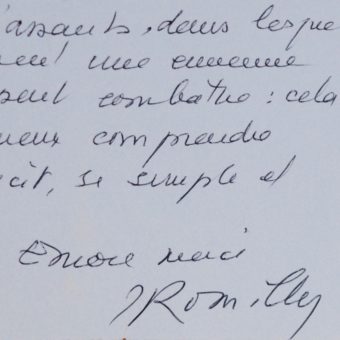 d'assauts, dans lesque
une ennemie
combattre : cela
mieux comprendre
cit, si simple et
Encore merci
JRomilly